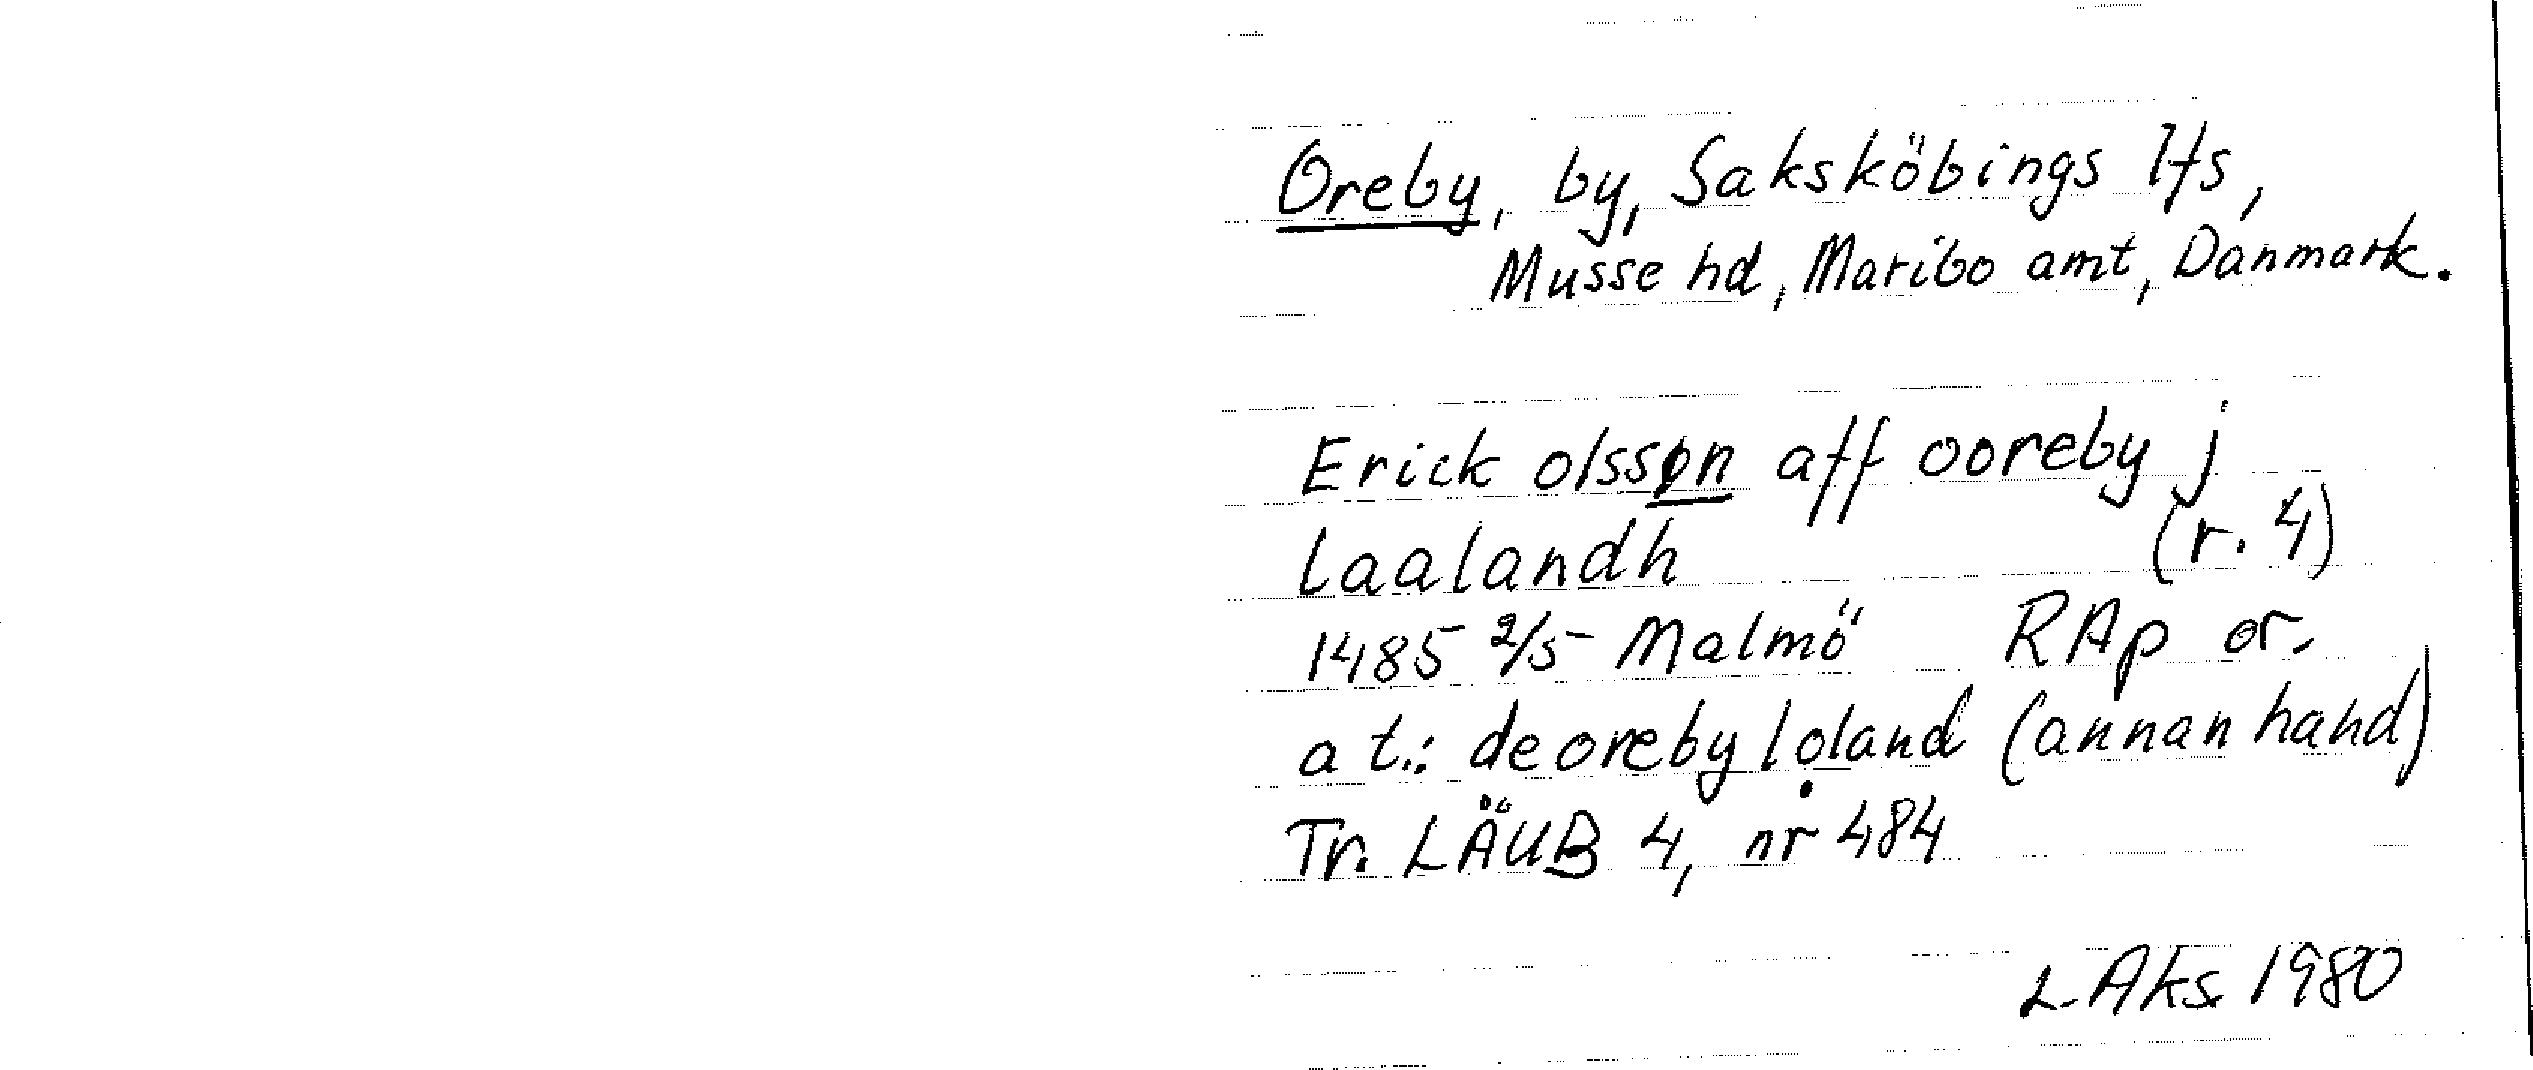 Oreby, by, Saksköbings lfs,
Musse hd, Maribo amt, Danmark.
Erick olsson aff ooreby j
Laalandh (r. 4)
1485 2/5 Malmö RAp or.
a t.: de oreby loland (annan hand)
Tr. LÄUB 4, nr 484
L. Aks 1980